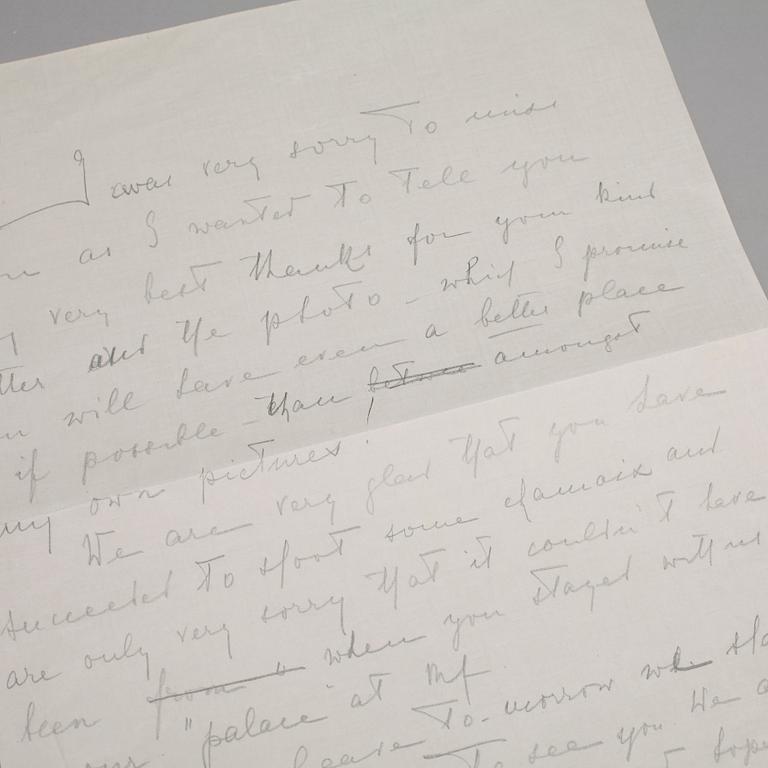 I was very sorry to miss
as I wanted to tell you
very best thanks for your kind
and the photo - which I promise
will have even a better place
if possible - than between amongst
my own pictures!
We are very glad that you have
succeeded to shoot some chamoix and
are only very sorry that it couldn't have
been from a when you stayed with us
"palace" at
leave to-morrow we
to see you. We